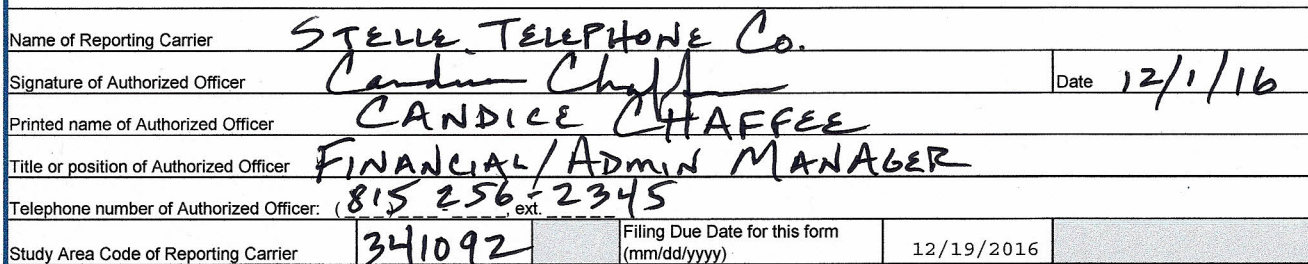 Name of Reporting Carrier STELLE TELEPHONE Co.
Signature of Authorized Officer Candice Chaffee Date 12/1/16
Printed name of Authorized Officer CANDICE CHAFFEE
Title or position of Authorized Officer FINANCIAL/ADMIN MANAGER
Telephone number of Authorized Officer: (815 256-2345 , ext.
Study Area Code of Reporting Carrier 341092 Filing Due Date for this form
(mm/dd/yyyy) 12/19/2016